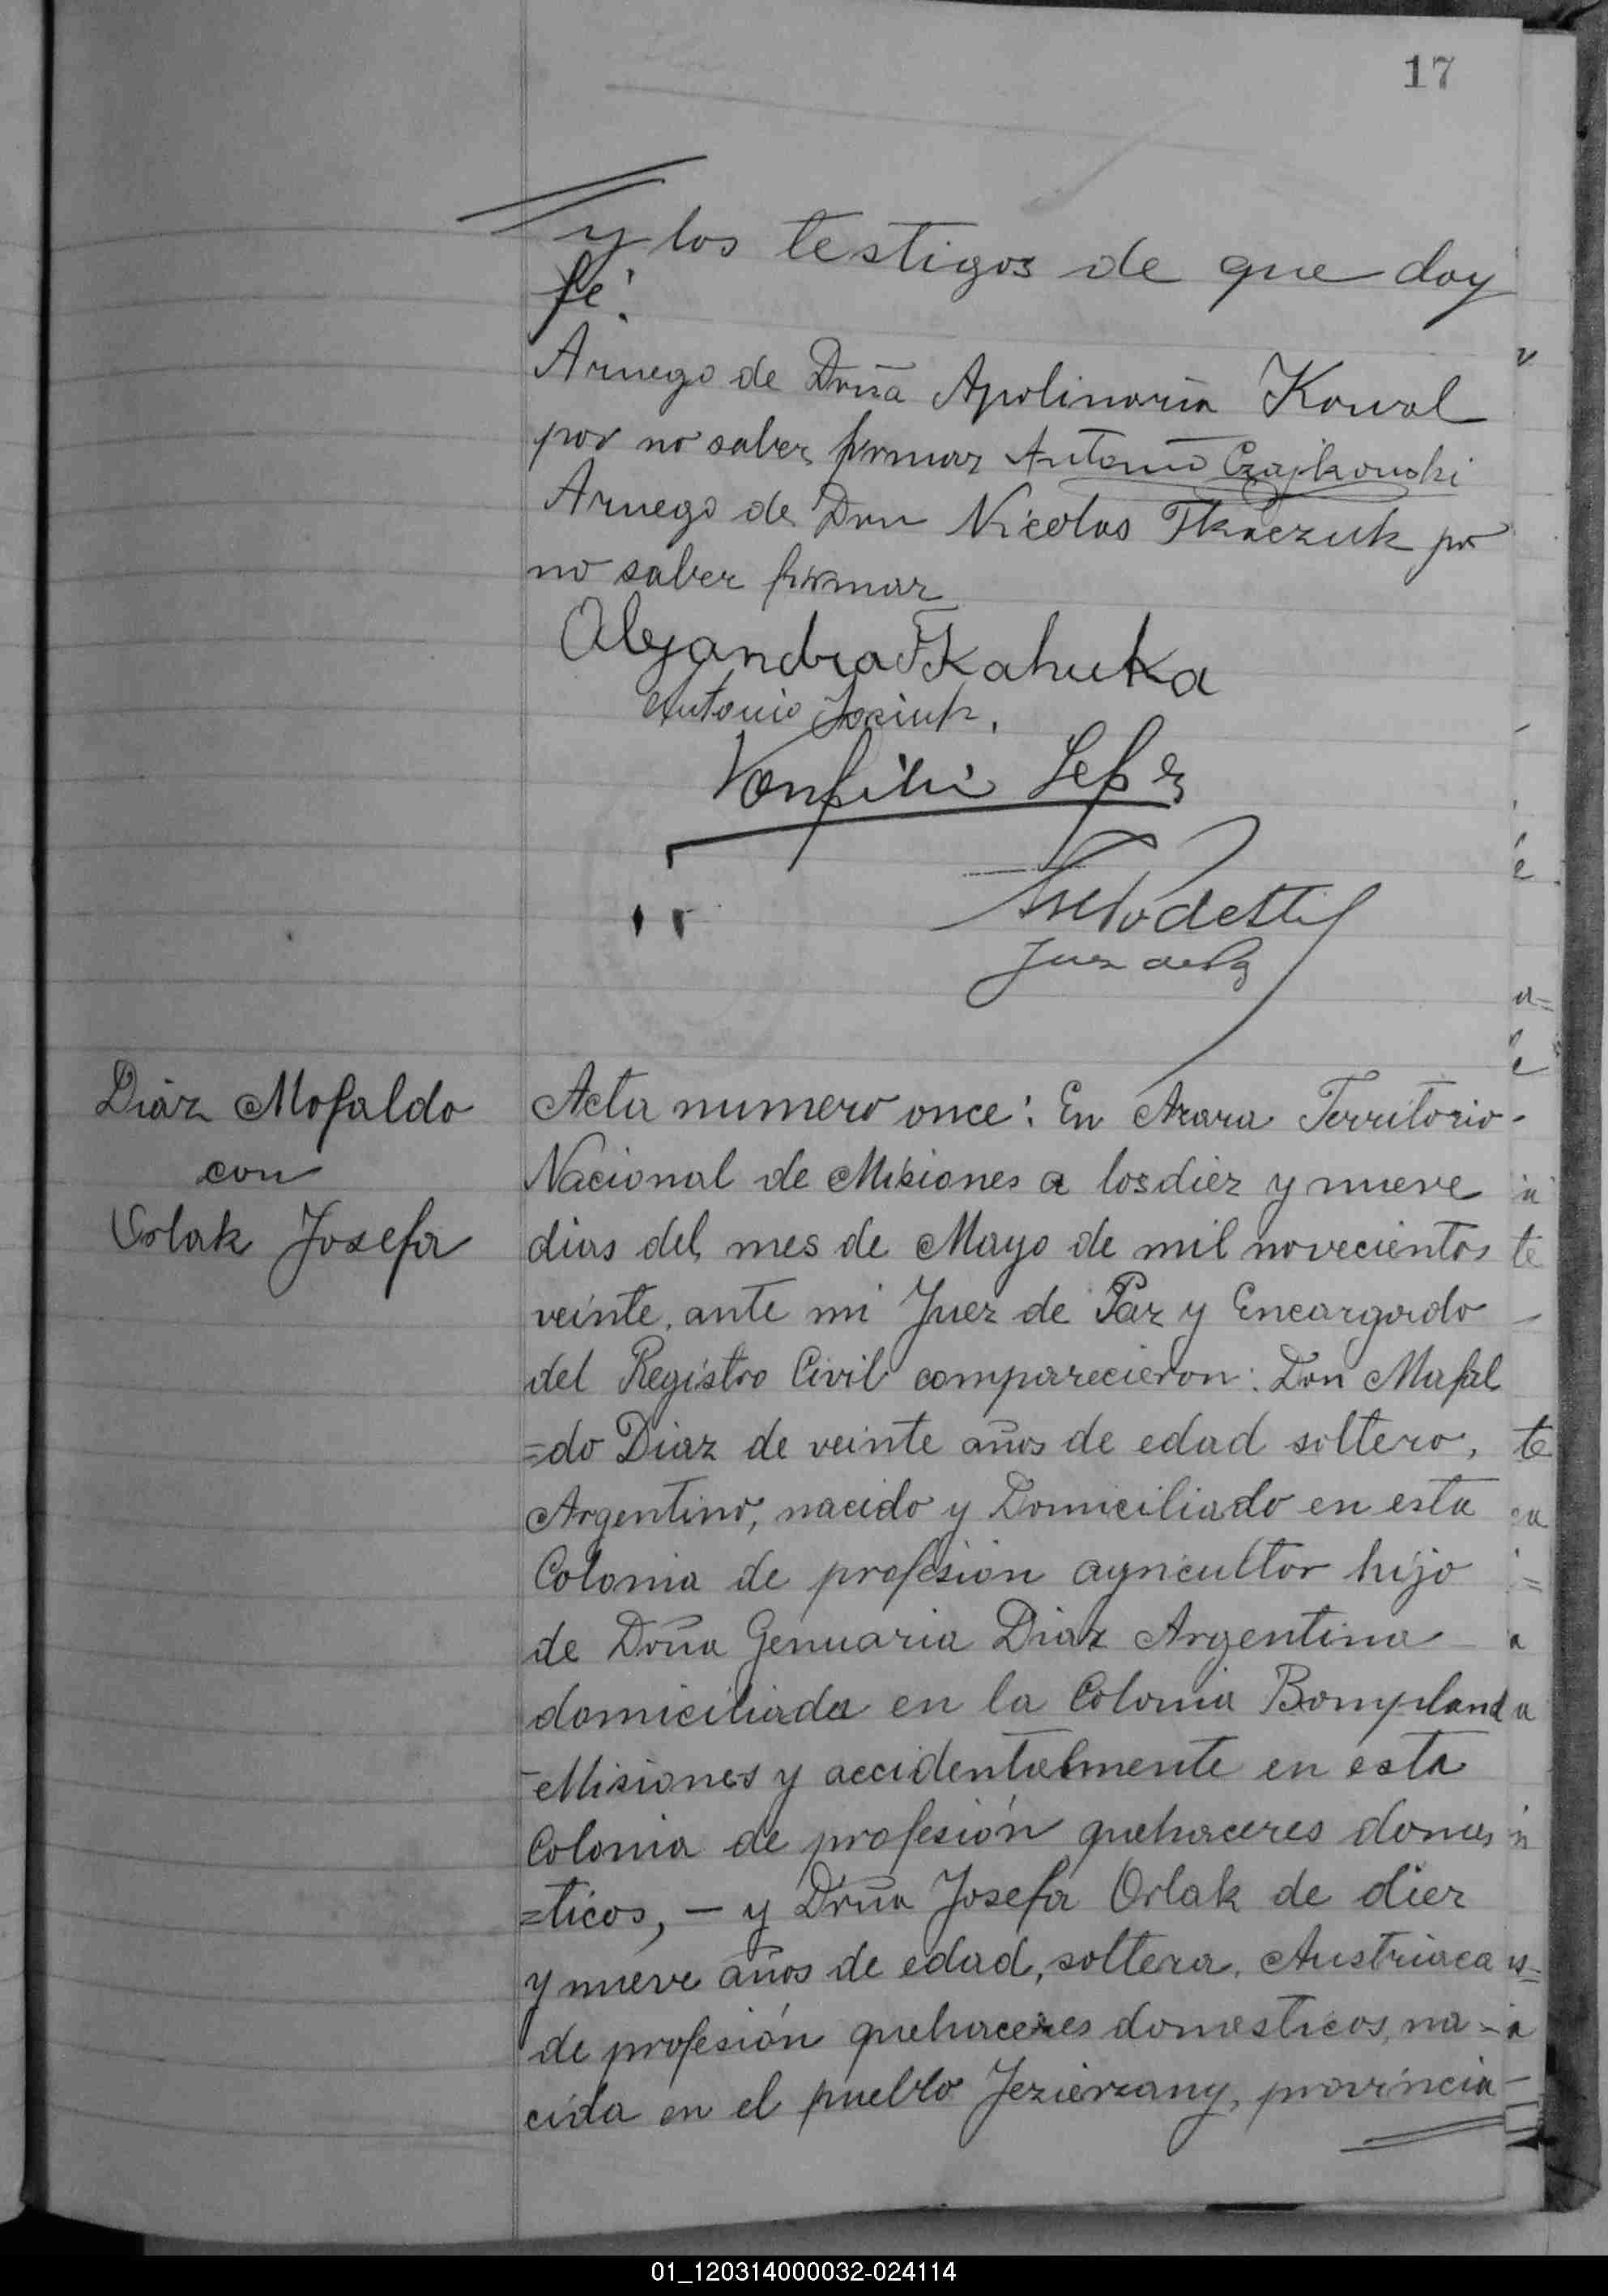 17
y los testigos de que doy
fé.
Aruego de Doña Apolinaria Kowal
por no saber firmar Antonio Czajkowski
Aruego de Don Nicolas Tkaczuk por
no saber firmar
Alejandra Tkahuka
Antonio
Juez de Paz
Diaz Mofaldo
con
Orlak Josefa
Acta numero once: En Azara Territorio
Nacional de Misiones a los diez y nueve
dias del mes de Mayo de mil novecientos
veinte, ante mi Juez de Paz y Encargado
del Registro Civil comparecieron: Don Mafal
=do Diaz de veinte años de edad soltero,
Argentino, nacido y Domiciliado en esta
Colonia de profesion agricultor hijo
de Doña Genuaria Diaz Argentina
domiciliada en la Colonia Bompland
Misiones y accidentalmente en esta
Colonia de profesión quehaceres domes
=ticos, – y Doña Josefa Orlak de diez
y nueve años de edad, soltera, Austriaca
de profesión quehaceres domesticos, na-
cida en el pueblo Jezierzany, provincia
01_120314000032-024114